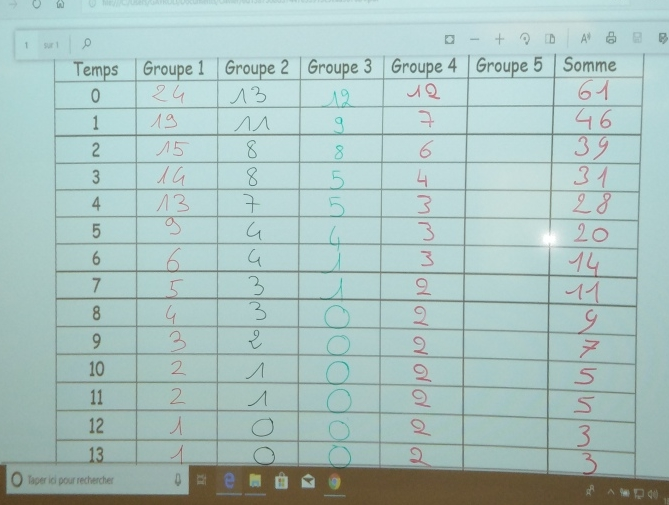 1 sur 1
Temps Groupe 1 Groupe 2 Groupe 3 Groupe 4 Groupe 5 Somme
0 24 13 12 12 61
1 19 11 9 7 46
2 15 8 8 6 39
3 14 8 5 4 31
4 13 7 5 3 28
5 9 4 4 3 20
6 6 4 1 3 14
7 5 3 1 2 11
8 4 3 0 2 9
9 3 2 0 2 7
10 2 1 0 2 5
11 2 1 0 2 5
12 1 0 0 2 3
13 1 0 0 2 3
Taper ici pour rechercher